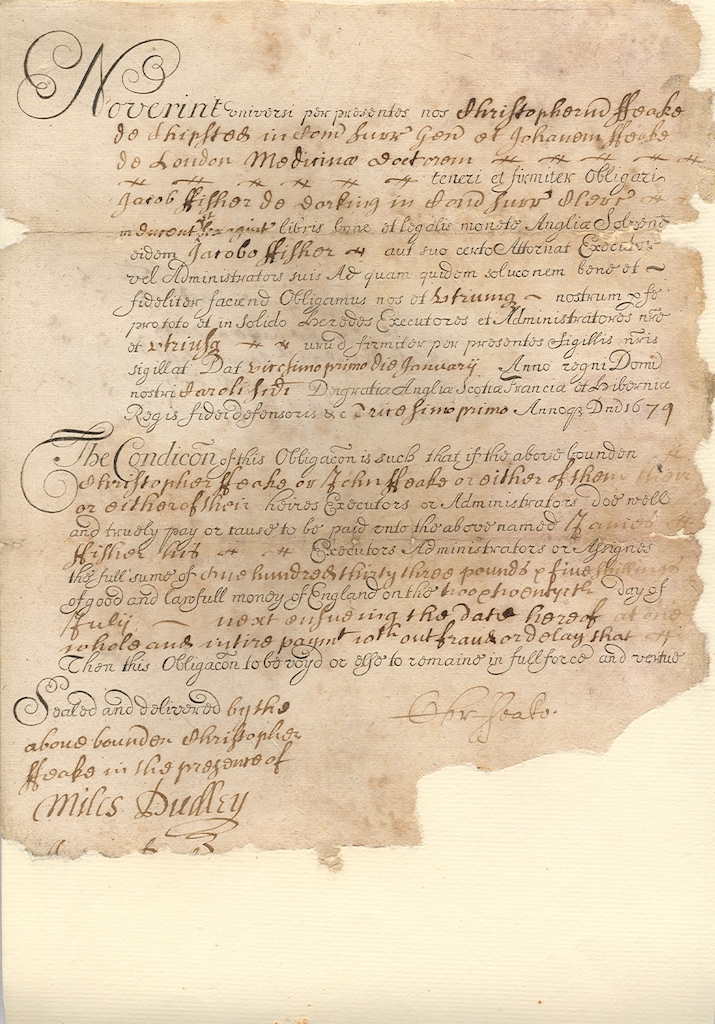 Noverint universi per presentes nos Christopherum Ffeake
de Chipsted in Com Surr Gen et Johanem Ffeake
de London Medicinæ doctorem
teneri et firmiter Obligari
Jacob Ffisher de Dorking in Com Surr Cleric
in ducent libris bone et legalis monete Angliæ Solvend
eidem Jacobo Ffisher aut suo certo Attornat Executor
vel Administrators suis Ad quam quidem soluconem bene et
fideliter faciend Obligamus nos et Utrumq nostrum p se
pro toto et in Solido heredes Executores et Administratores nre
et Utriusq firmiter per presentes Sigillis nris
sigillat Dat vicesimo primo die Januarij Anno regni Domi
nostri Caroli Scdi Dei gratiæ Angliæ Scotiæ Franciæ et Hiberniæ
Regis fidei defensoris &c Tricesimo primo Annoq Dni 1679
The Condicon of this Obligacon is such that if the above bounden
Christopher Ffeake or John Ffeake or either of them their
or either of their heires Executors or Administrators doe well
and truely pay or cause to be paid unto the above named James
Ffisher his Executors Administrators or Assignes
the full sume of One hundred thirty three pounds & five shillings
of good and lawfull money of England on the two & twentyeth day of
July next ensueing the date hereof at one
whole and intire paymt without fraud or delay that
Then this Obligacon to be voyd or else to remaine in full force and vertue
Sealed and delivered by the
above bounden Christopher
Ffeake in the presence of
Chr Feake.
Miles Dudley